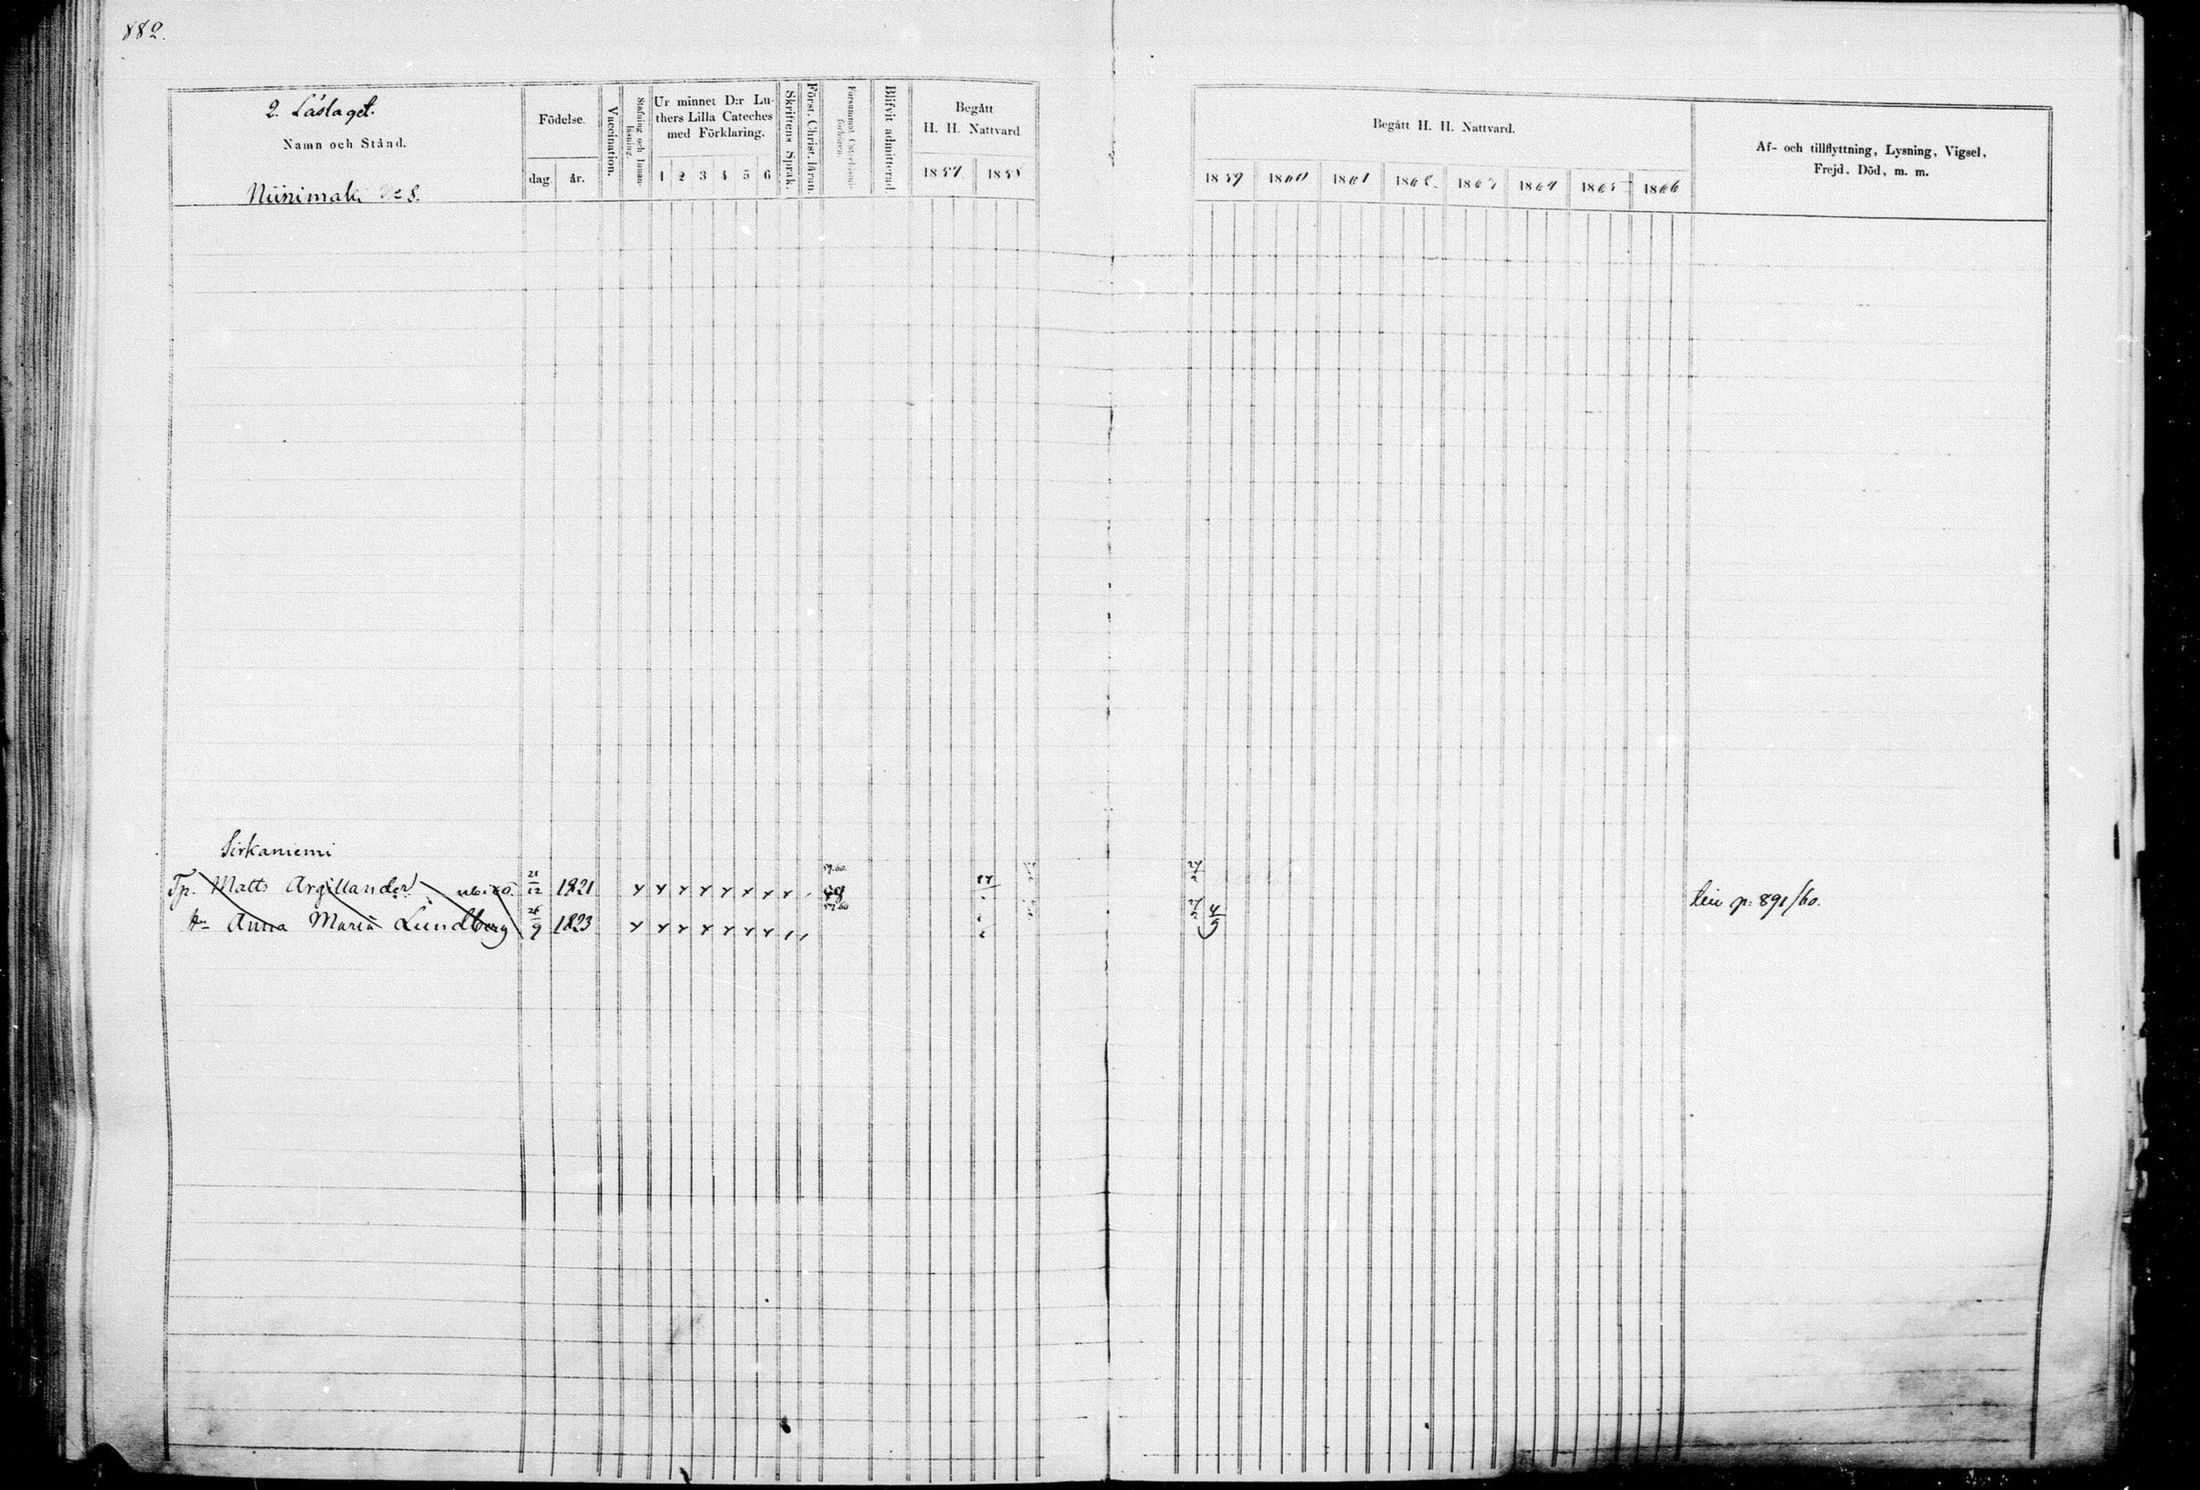 882.
2. Läslaget.
Namn och Stånd.
Niinimäki No 8.
Födelse.
dag. år.
Vaccination.
Stafning och Innanläsning.
Ur minnet D:r Luthers Lilla Cateches med Förklaring.
1 2 3 4 5 6
Skriftens Språk.
Först. Christ. läran.
Försummat Catechismiförhören.
Blifvit admitterad
Begått
H. H. Nattvard
1857 1858
Begått H. H. Nattvard.
1859 1860 1861 1862 1863 1864 1865 1866
Af- och tillflyttning, Lysning, Vigsel,
Frejd, Död, m. m.
Sirkaniemi
Tp. Matts Argillander 21/12 1821 59.60. 27/2
hu Anna Maria Lundberg 26/9 1823 59.60 27/2 4/9
p. 891/60.